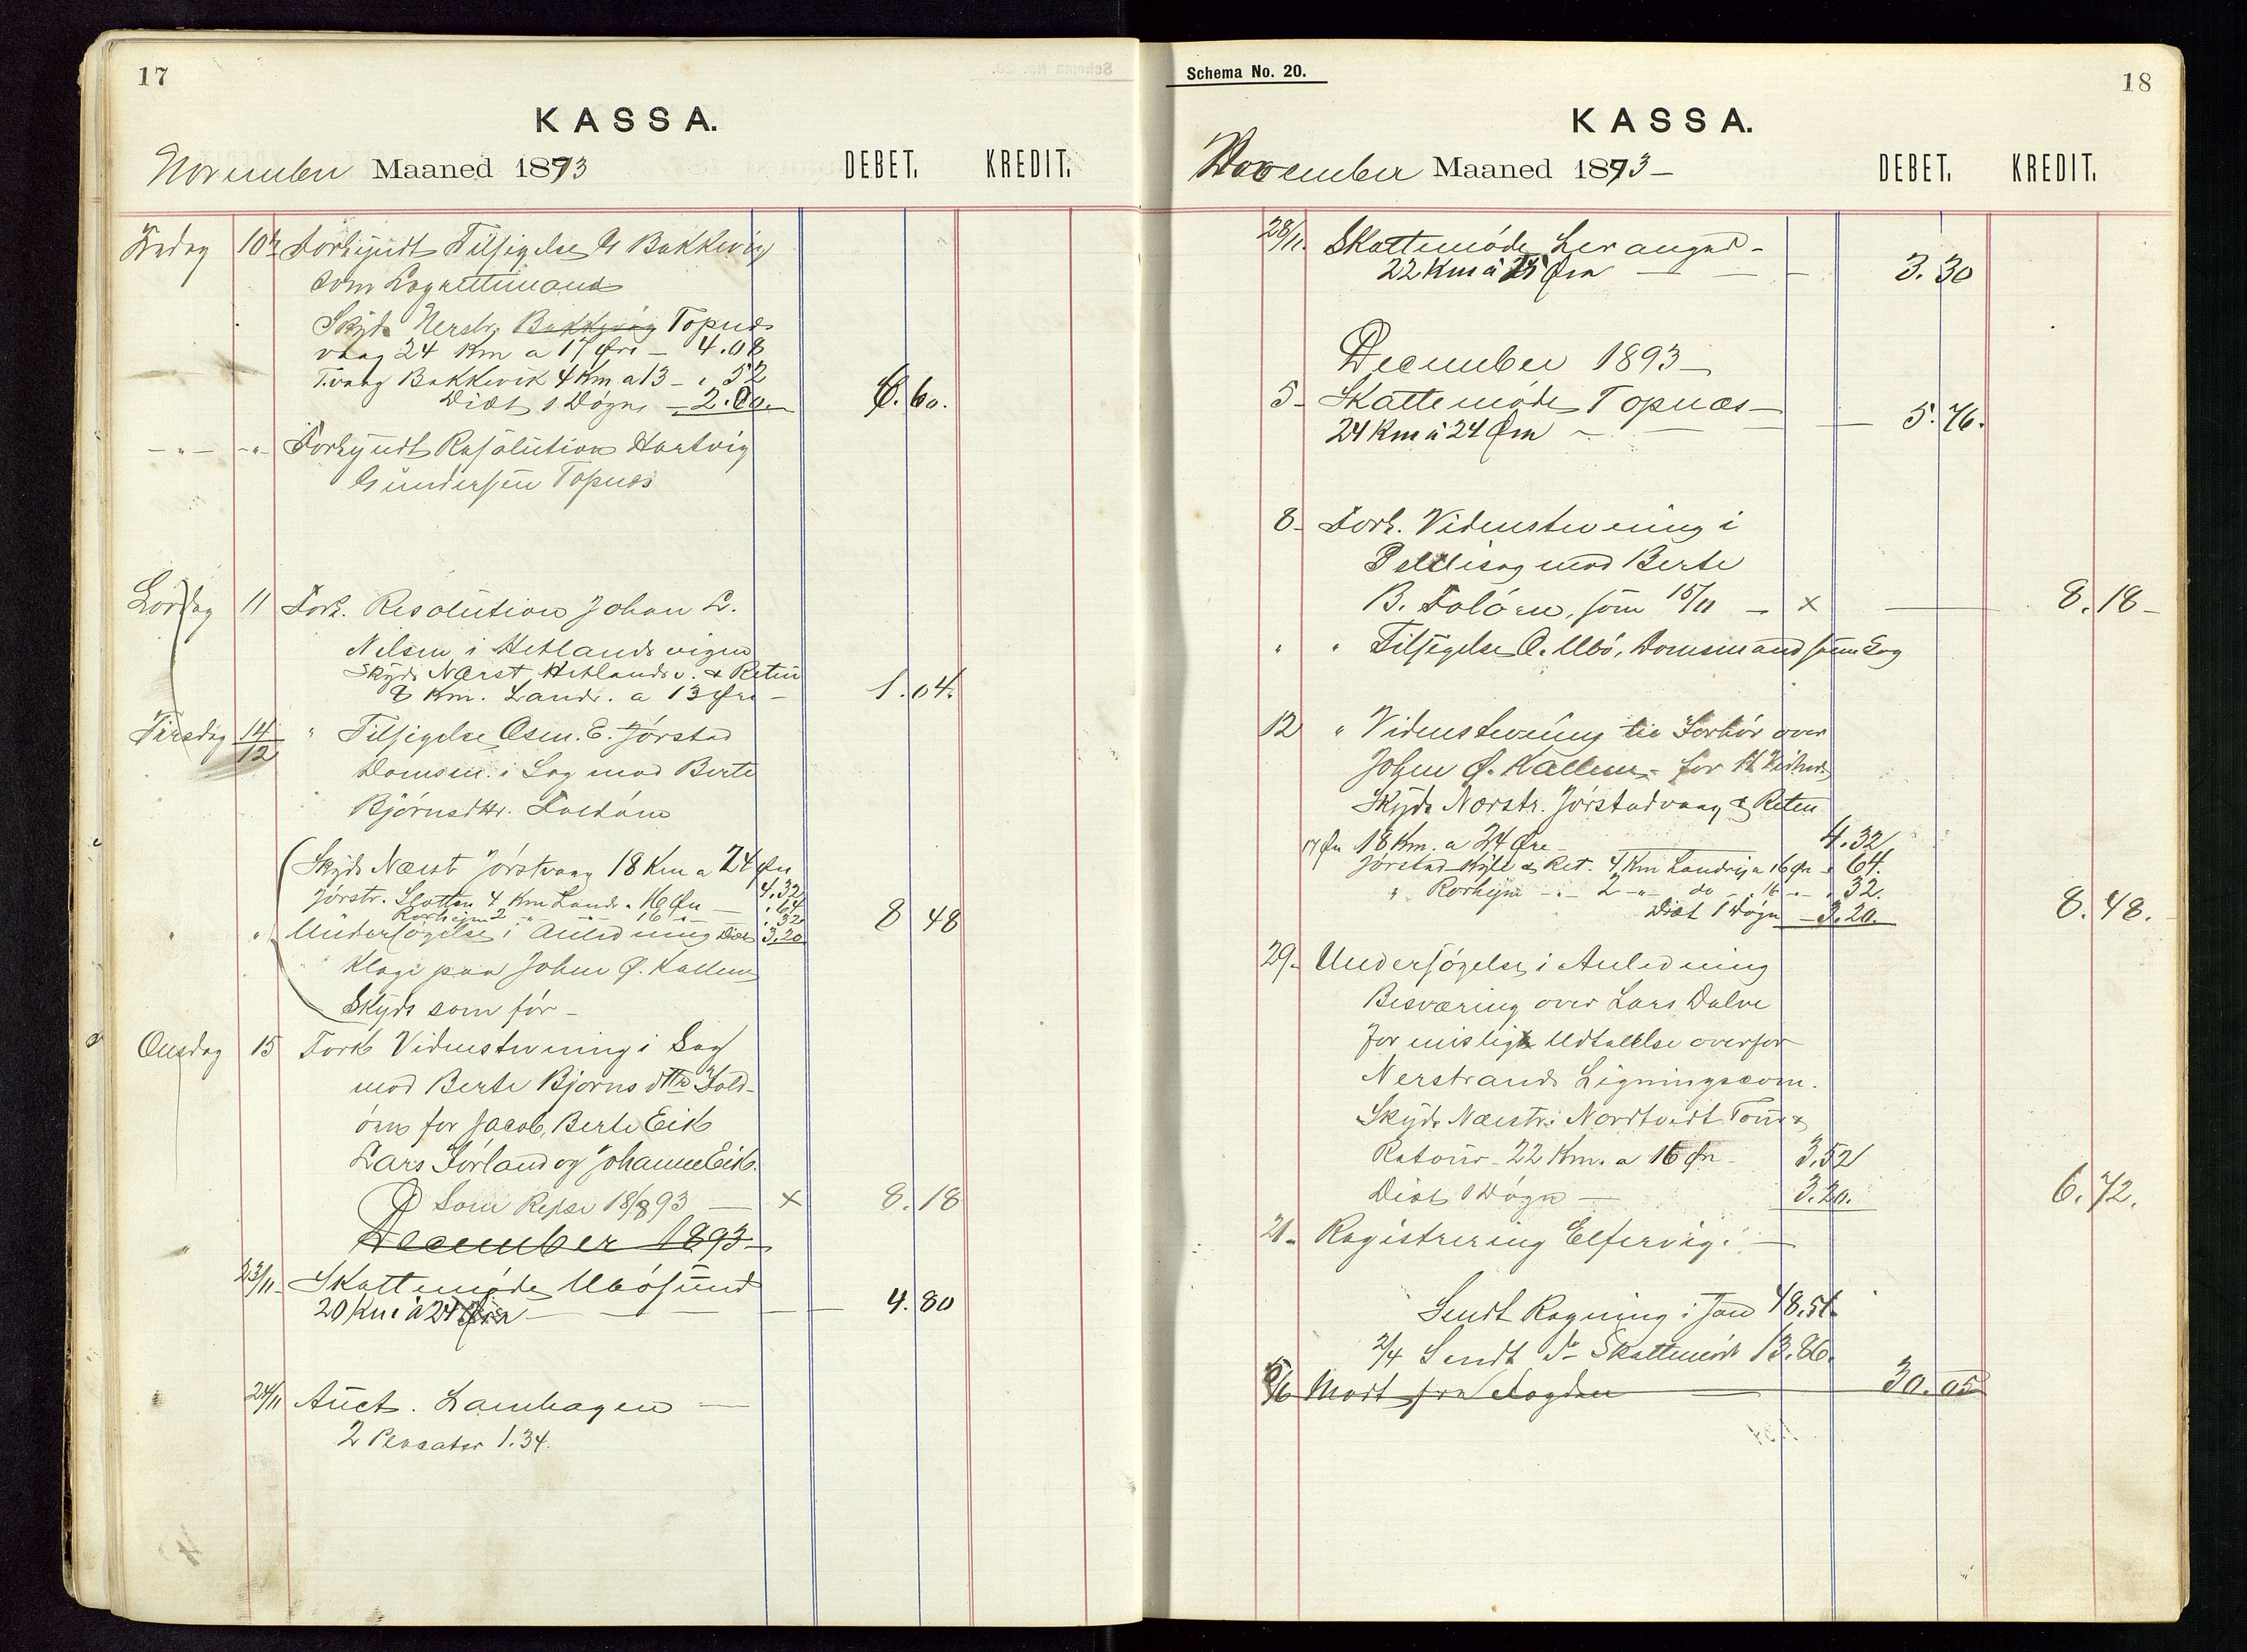 17
KASSA.
November Maaned 1893
DEBET. KREDIT.
Fredag 10de Forkyndt Tilsigelse G Bakkevig
som Lagrettemand
Skyds Nerstr. Bakkevig Topnes
vaag 24 Km a 17 Øre - 4.08
T.vaag Bakkevik 4 Km a 13 - „ 52
Diæt 1 Døgn - 2.00. 6.60.
- „ - - „ - Forkyndt Resolution Hartvig
Gundersen Topnes
Lørdag 11 Fork. Resolution Johan L.
Nilsen i Hetlandsvigen
Skyds Nærst. Hetlandsv. & Retur
8 Km. Landv. a 13 Øre - 1.04.
Tirsdag 14/12 „ Tilsigelse Osm. E. Jørstad
Domsm. i Sag mod Berte
Bjørnsdtr. Foldøen
Skyds Nærst Jørstvaag 18 Km a 24 Øre 4.32
Jørstr. Slotten 4 Km Landv. a 16 Øre „ 64
Rorheim 2 - „ - - „ - 16 „ - „ 32 8 48
„ „ Undersøgelse i Anledning Diæt 3.20
Klage paa John Ø. Kallem
Skyds som før -
Onsdag 15 Fork Vidnestevning i Sag
mod Berte Bjørnsdttr Fold-
øen for Jacob, Berte Eik
Lars Førland og Johanne Eik.
Som Rejse 18/8 93 - x 8.18
December 1893
23/11 Skattemøde Ubøsund
20 Km à 24 Øre - - - 4.80
24/11 Auct. Lamhagen -
2 1.34.
Schema No. 20.
18
KASSA.
November Maaned 1893 -
DEBET. KREDIT.
28/11. Skattemøde Lervanger -
22 Km à 15 Øre - - - 3.30
December 1893 -
5 - Skattemøde Topnæs -
24 Km à 24 Øre - - - 5.76.
8 - Fork. Vidnestevning i
Politisag mod Berte
B. Foløen, som 15/11 - x 8.18 -
„ „ Tilsigelse O. Ubø, Domsmand samme Sag
12 „ Vidnestevning til Forhør over
John Ø. Kallem - for
Skyds Nærstr. Jørstadvaag & Reten
17 Øre 18 Km. a 24 Øre - 4.32
Jørstad - & Ret. 4 Km Landvej a 16 Øre - „ 64.
„ Rorheim - „ - 2 - „ - do - „ 16 - „ - „ 32.
Diæt 1 Døgn - 3.20. 8.48.
29 - Undersøgelse i Anledning
Besværing over Lars Dalve
for mislige Udtalelse overfor
Nerstrands Ligningscom.
Skyds Næstr. Nordtvedt Tou &
Retour - 22 Km. a 16 Øre - 3.52
Diæt 1 Døgn - 3.20. 6.72.
21 - Registrering Elfervig. -
Sendt Regning i Jan 48.51.
2/4 Sendt do Skattemøde 13.86.
5/6 Modt fra Fogden 30.05